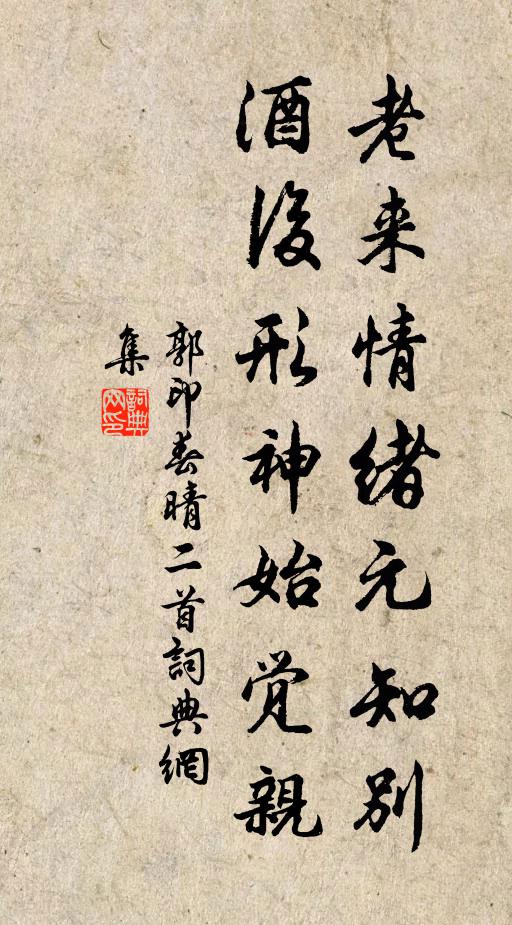 老来情绪元知别
酒後形神始觉親
郭印春晴二首詞典網
集
詞典网印